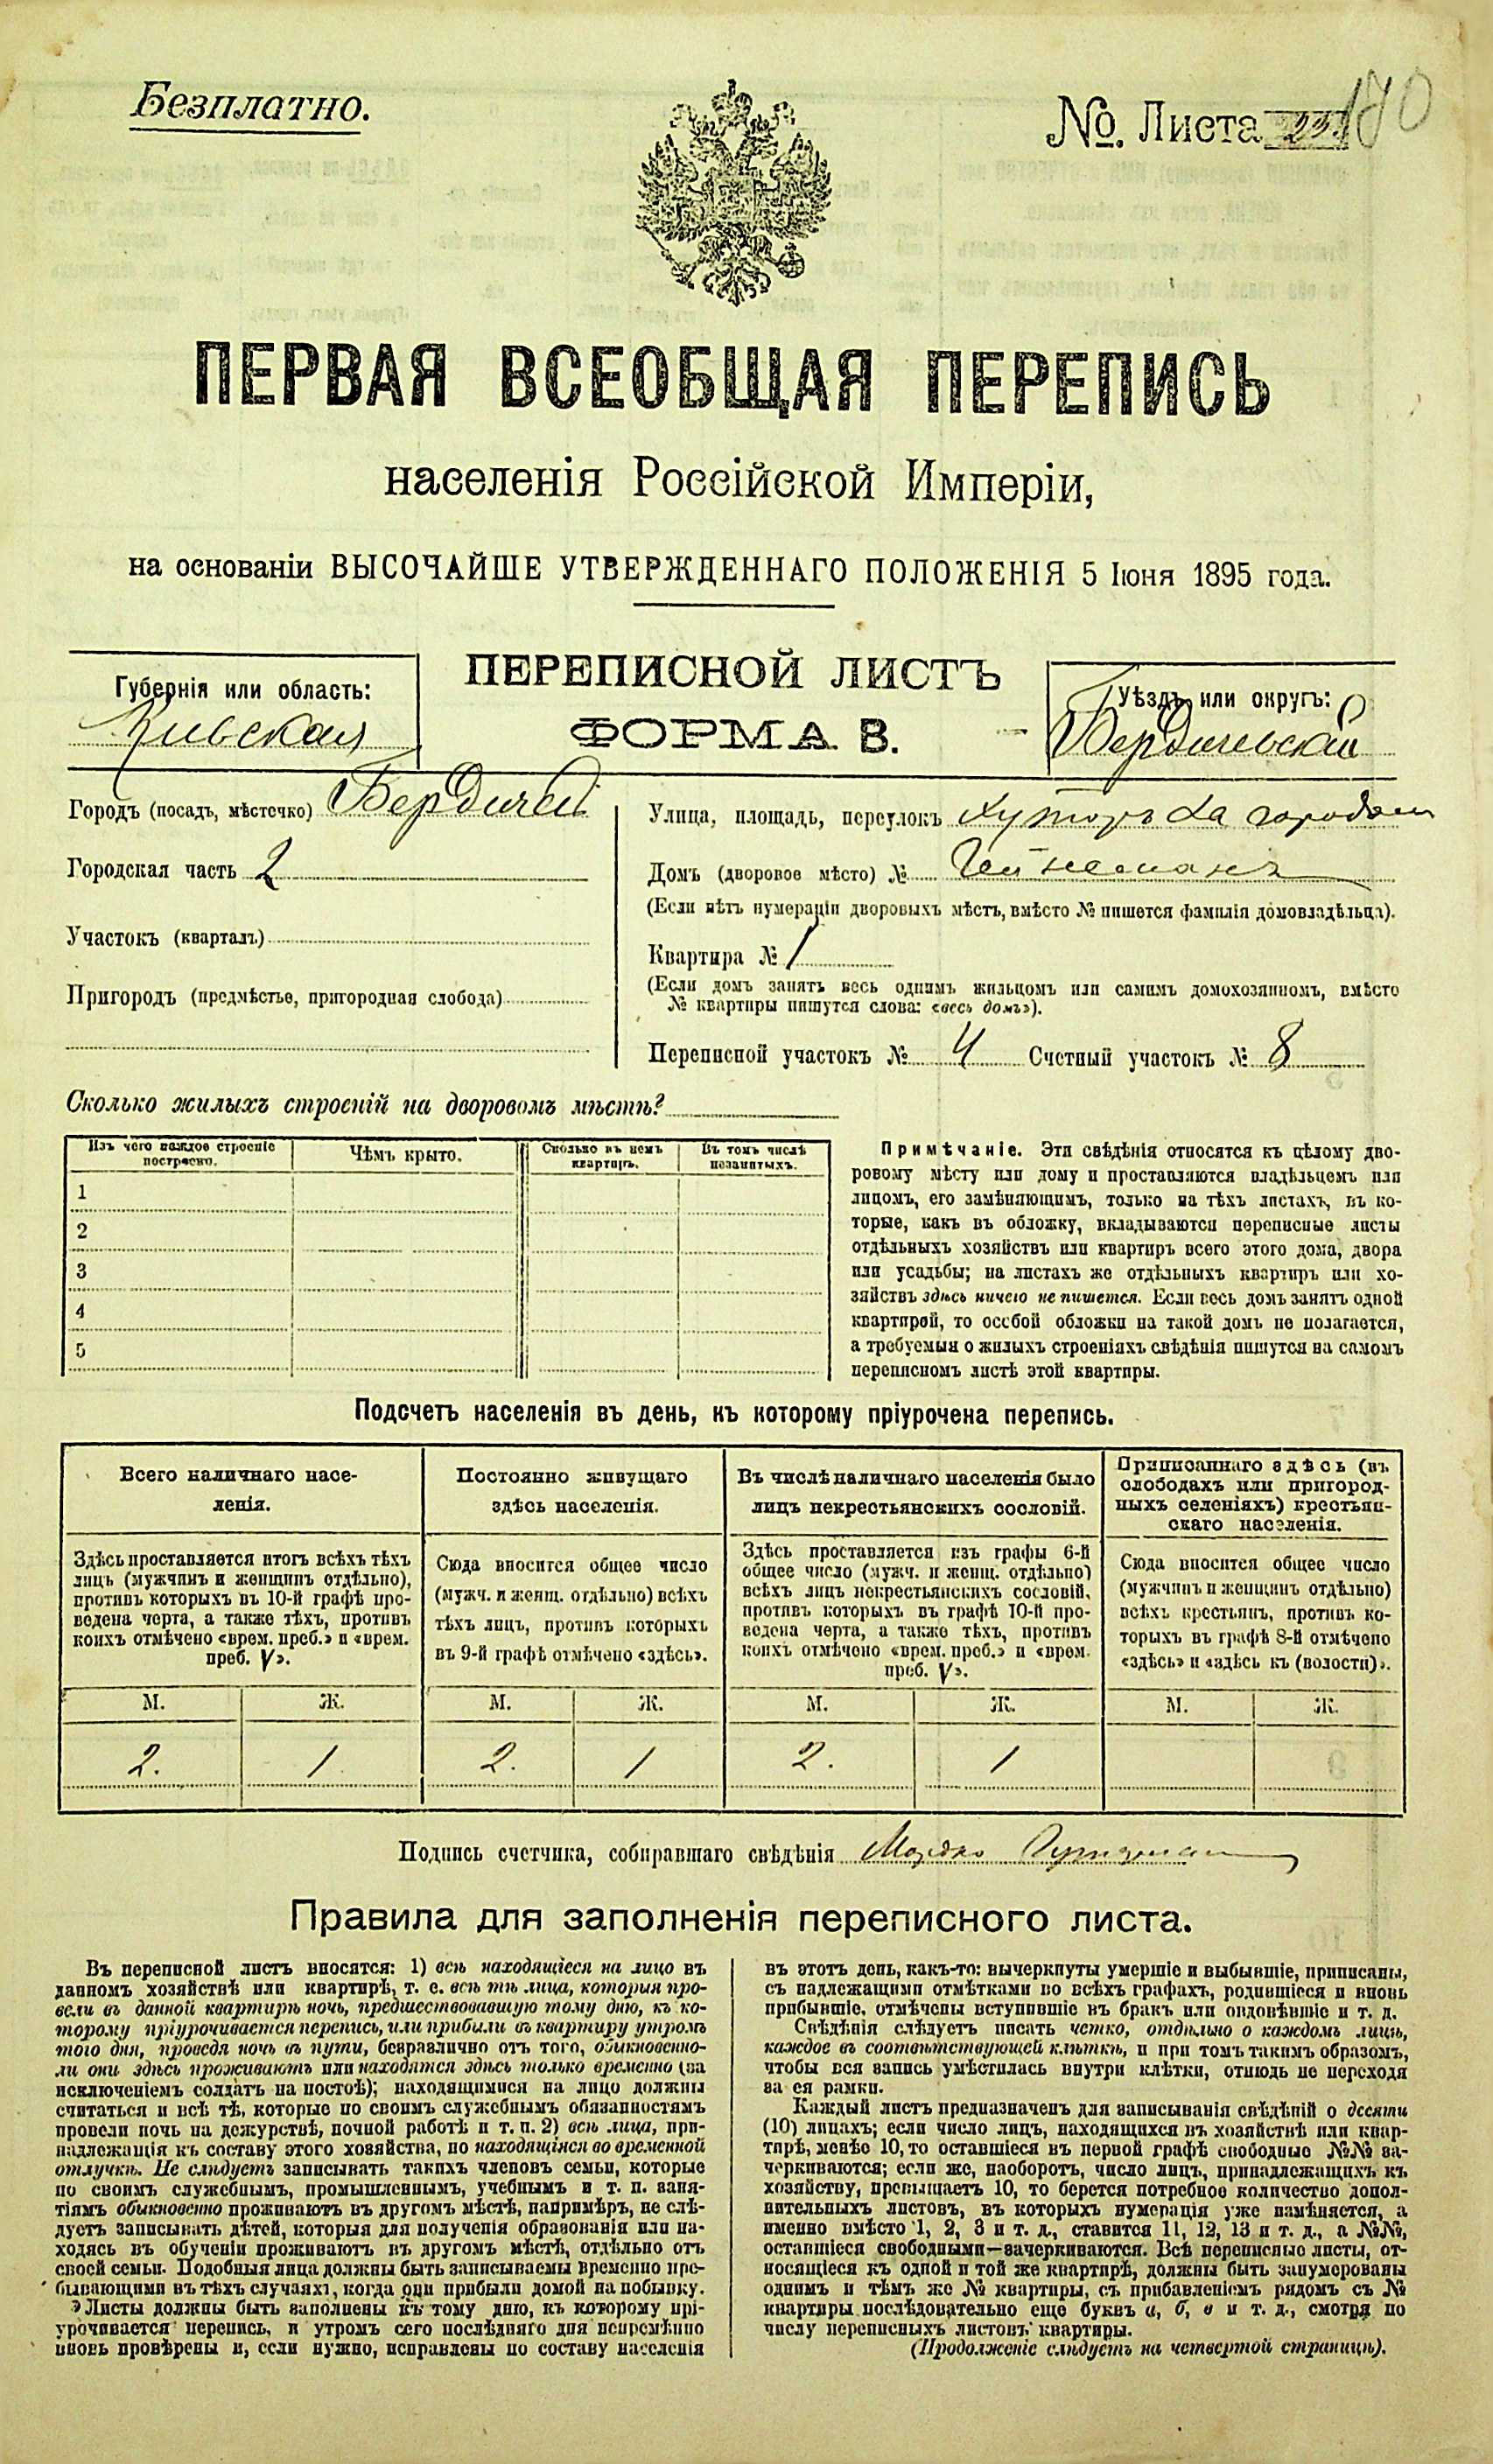 Безплатно.
№. Листа 170
ПЕРВАЯ ВСЕОБЩАЯ ПЕРЕПИСЬ
населенія Россійской Имперіи,
на основаніи ВЫСОЧАЙШЕ УТВЕРЖДЕННАГО ПОЛОЖЕНІЯ 5 Іюня 1895 года.
ПЕРЕПИСНОЙ ЛИСТЪ
ФОРМА В.
Губернія или область:
Кіевская
Уѣздъ или округъ:
Бердичевскій
Городъ (посадъ, мѣстечко) Бердичев
Городская часть 2
Участокъ (кварталъ)
Пригородъ (предмѣстье, пригородная слобода)
Улица, площадь, переулокъ Хуторъ за городом
Домъ (дворовое мѣсто) № Гейнемана
(Если нѣтъ нумераціи дворовыхъ мѣстъ, вмѣсто № пишется фамилія домовладѣльца).
Квартира № 1
(Если домъ занятъ весь однимъ жильцомъ или самимъ домохозяиномъ, вмѣсто
№ квартиры пишутся слова: «весь домъ»).
Переписной участокъ № 4 Счетный участокъ № 8
Сколько жилыхъ строеній на дворовомъ мѣстѣ?
Изъ чего каждое строеніе построено.
Чѣмъ крыто.
Сколько въ немъ квартиръ.
Въ томъ числѣ незанятыхъ.
1
2
3
4
5
Примѣчаніе. Эти свѣдѣнія относятся къ цѣлому дво-
ровому мѣсту или дому и проставляются владѣльцемъ или
лицомъ, его замѣняющимъ, только на тѣхъ листахъ, въ ко-
торые, какъ въ обложку, вкладываются переписные листы
отдѣльныхъ хозяйствъ или квартиръ всего этого дома, двора
или усадьбы; на листахъ же отдѣльныхъ квартиръ или хо-
зяйствъ здѣсь ничего не пишется. Если весь домъ занятъ одной
квартирой, то особой обложки на такой домъ не полагается,
а требуемыя о жилыхъ строеніяхъ свѣдѣнія пишутся на самомъ
переписномъ листѣ этой квартиры.
Подсчетъ населенія въ день, къ которому пріурочена перепись.
Всего наличнаго насе-
ленія.
Постоянно живущаго
здѣсь населенія.
Въ числѣ наличнаго населенія было
лицъ некрестьянскихъ сословій.
Приписаннаго здѣсь (въ
слободахъ или пригород-
ныхъ селеніяхъ) крестьян-
скаго населенія.
Здѣсь проставляется итогъ всѣхъ тѣхъ
лицъ (мужчинъ и женщинъ отдѣльно),
противъ которыхъ въ 10-й графѣ про-
ведена черта, а также тѣхъ, противъ
коихъ отмѣчено «врем. преб.» и «врем.
преб. V».
Сюда вносится общее число
(мужч. и женщ. отдѣльно) всѣхъ
тѣхъ лицъ, противъ которыхъ
въ 9-й графѣ отмѣчено «здѣсь».
Здѣсь проставляется изъ графы 6-й
общее число (мужч. и женщ. отдѣльно)
всѣхъ лицъ некрестьянскихъ сословій,
противъ которыхъ въ графѣ 10-й про-
ведена черта, а также тѣхъ, противъ
коихъ отмѣчено «врем. преб.» и «врем.
преб. V».
Сюда вносится общее число
(мужчинъ и женщинъ отдѣльно)
всѣхъ крестьянъ, противъ ко-
торыхъ въ графѣ 8-й отмѣчено
«здѣсь» и «здѣсь къ (волости)».
М. Ж. М. Ж. М. Ж. М. Ж.
2. 1 2. 1 2. 1
Подпись счетчика, собиравшаго свѣдѣнія Мордко
Правила для заполненія переписного листа.
Въ переписной листъ вносятся: 1) всѣ находящіеся на лицо въ
данномъ хозяйствѣ или квартирѣ, т. е. всѣ тѣ лица, которыя про-
вели въ данной квартирѣ ночь, предшествовавшую тому дню, къ ко-
торому пріурочивается перепись, или прибыли въ квартиру утромъ
того дня, проведя ночь въ пути, безразлично отъ того, обыкновенно-
ли они здѣсь проживаютъ или находятся здѣсь только временно (за
исключеніемъ солдатъ на постоѣ); находящимися на лицо должны
считаться и всѣ тѣ, которые по своимъ служебнымъ обязанностямъ
провели ночь на дежурствѣ, ночной работѣ и т. п. 2) всѣ лица, при-
надлежащія къ составу этого хозяйства, но находящіяся во временной
отлучкѣ. Не слѣдуетъ записывать такихъ членовъ семьи, которые
по своимъ служебнымъ, промышленнымъ, учебнымъ и т. п. заня-
тіямъ обыкновенно проживаютъ въ другомъ мѣстѣ, напримѣръ, не слѣ-
дуетъ записывать дѣтей, которыя для полученія образованія или на-
ходясь въ обученіи проживаютъ въ другомъ мѣстѣ, отдѣльно отъ
своей семьи. Подобныя лица должны быть записываемы временно пре-
бывающими въ тѣхъ случаяхъ, когда они прибыли домой на побывку.
Листы должны быть заполнены къ тому дню, къ которому прі-
урочивается перепись, и утромъ сего послѣдняго дня непремѣнно
вновь провѣрены и, если нужно, исправлены по составу населенія
въ этотъ день, какъ-то: вычеркнуты умершіе и выбывшіе, приписаны,
съ надлежащими отмѣтками во всѣхъ графахъ, родившіеся и вновь
прибывшіе, отмѣчены вступившіе въ бракъ или овдовѣвшіе и т. д.
Свѣдѣнія слѣдуетъ писать четко, отдѣльно о каждомъ лицѣ,
каждое въ соотвѣтствующей клѣткѣ, и при томъ такимъ образомъ,
чтобы вся запись умѣстилась внутри клѣтки, отнюдь не переходя
за ея рамки.
Каждый листъ предназначенъ для записыванія свѣдѣній о десяти
(10) лицахъ; если число лицъ, находящихся въ хозяйствѣ или квар-
тирѣ, менѣе 10, то оставшіеся въ первой графѣ свободные №№ за-
черкиваются; если же, наоборотъ, число лицъ, принадлежащихъ къ
хозяйству, превышаетъ 10, то берется потребное количество допол-
нительныхъ листовъ, въ которыхъ нумерація уже измѣняется, а
именно вмѣсто 1, 2, 3 и т. д., ставится 11, 12, 13 и т. д., а №№,
оставшіеся свободными—зачеркиваются. Всѣ переписные листы, от-
носящіеся къ одной и той же квартирѣ, должны быть занумерованы
однимъ и тѣмъ же № квартиры, съ прибавленіемъ рядомъ съ №
квартиры послѣдовательно еще буквъ а, б, в и т. д., смотря по
числу переписныхъ листовъ квартиры.
(Продолженіе слѣдуетъ на четвертой страницѣ).